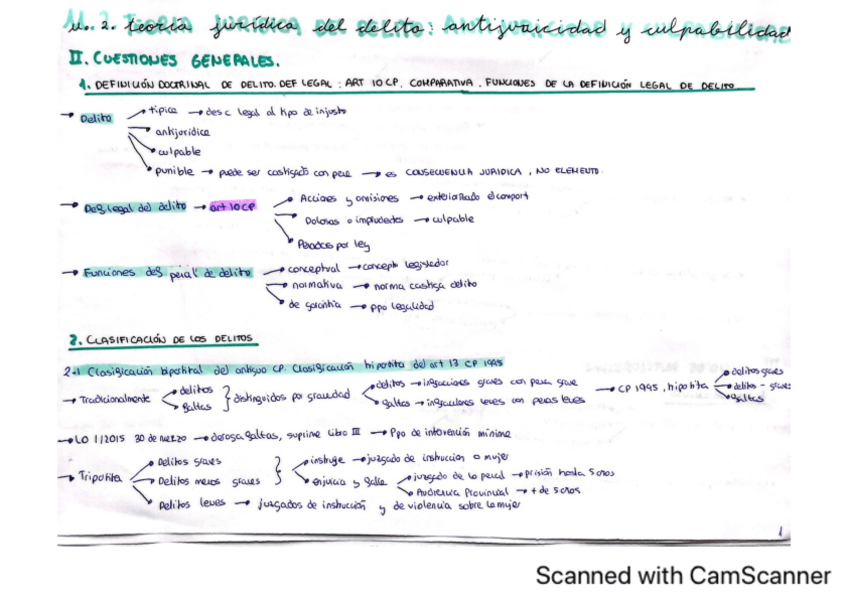 U. 2. teoría jurídica del delito: antijuricidad y culpabilidad
II. CUESTIONES GENERALES.
1. DEFINICIÓN DOCTRINAL DE DELITO. DEF LEGAL: ART 10 CP. COMPARATIVA. FUNCIONES DE LA DEFINICIÓN LEGAL DE DELITO
→ Delito → típica → desc legal al tipo de injusto
→ antijurídica
→ culpable
→ punible → puede ser castigado con pena → es CONSECUENCIA JURIDICA, NO ELEMENTO.
→ Def legal del delito → art 10 CP → Acciones y omisiones → exteriorizado el comport
→ Dolosas o imprudentes → culpable
→ Penados por ley
→ Funciones def penal de delito → conceptual → concepto legislador
→ normativa → norma castiga delito
→ de garantía → ppo legalidad
2. CLASIFICACIÓN DE LOS DELITOS
2.1 Clasificación bipartita del antiguo CP. Clasificación tripartita del art 13 CP 1995
→ Tradicionalmente delitos faltas } distinguidos por gravedad delitos → infracciones graves con pena grave → CP 1995, tripartita → delitos graves
faltas → infracciones leves con penas leves → delito - graves
→ faltas
→ LO 1/2015 30 de marzo → deroga faltas, suprime Libro III → Ppo de intervención mínima
→ Tripartita → Delitos graves } instruye → juzgado de instrucción o mujer
→ Delitos menos graves } enjuicia y falla → juzgado de lo penal → prisión hasta 5 años
→ Audiencia Provincial → + de 5 años
→ Delitos leves → juzgados de instrucción y de violencia sobre la mujer
1
Scanned with CamScanner